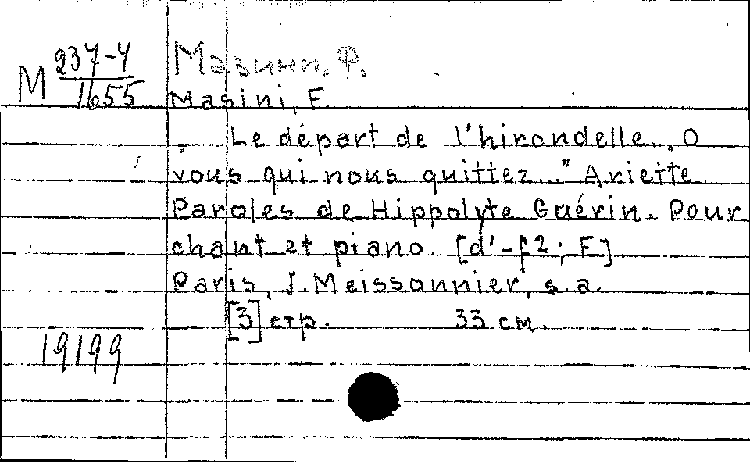 М 237-4
1655
Мазини, Ф.
Masini, F.
Le départ de l'hirondelle. „O
vous qui nous quittez..." Ariette
Paroles de Hippolyte Guérin. Pour
chant et piano. [d'-f2; F]
Paris, J. Meissonnier, s.a.
[3] стр. 33 см.
19199